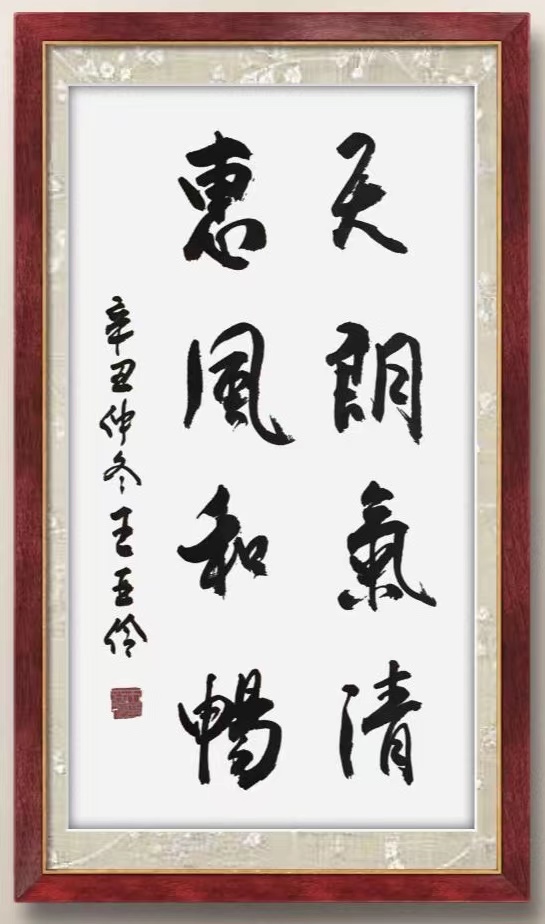 天朗氣清
惠風和暢
辛丑仲冬王玉伶